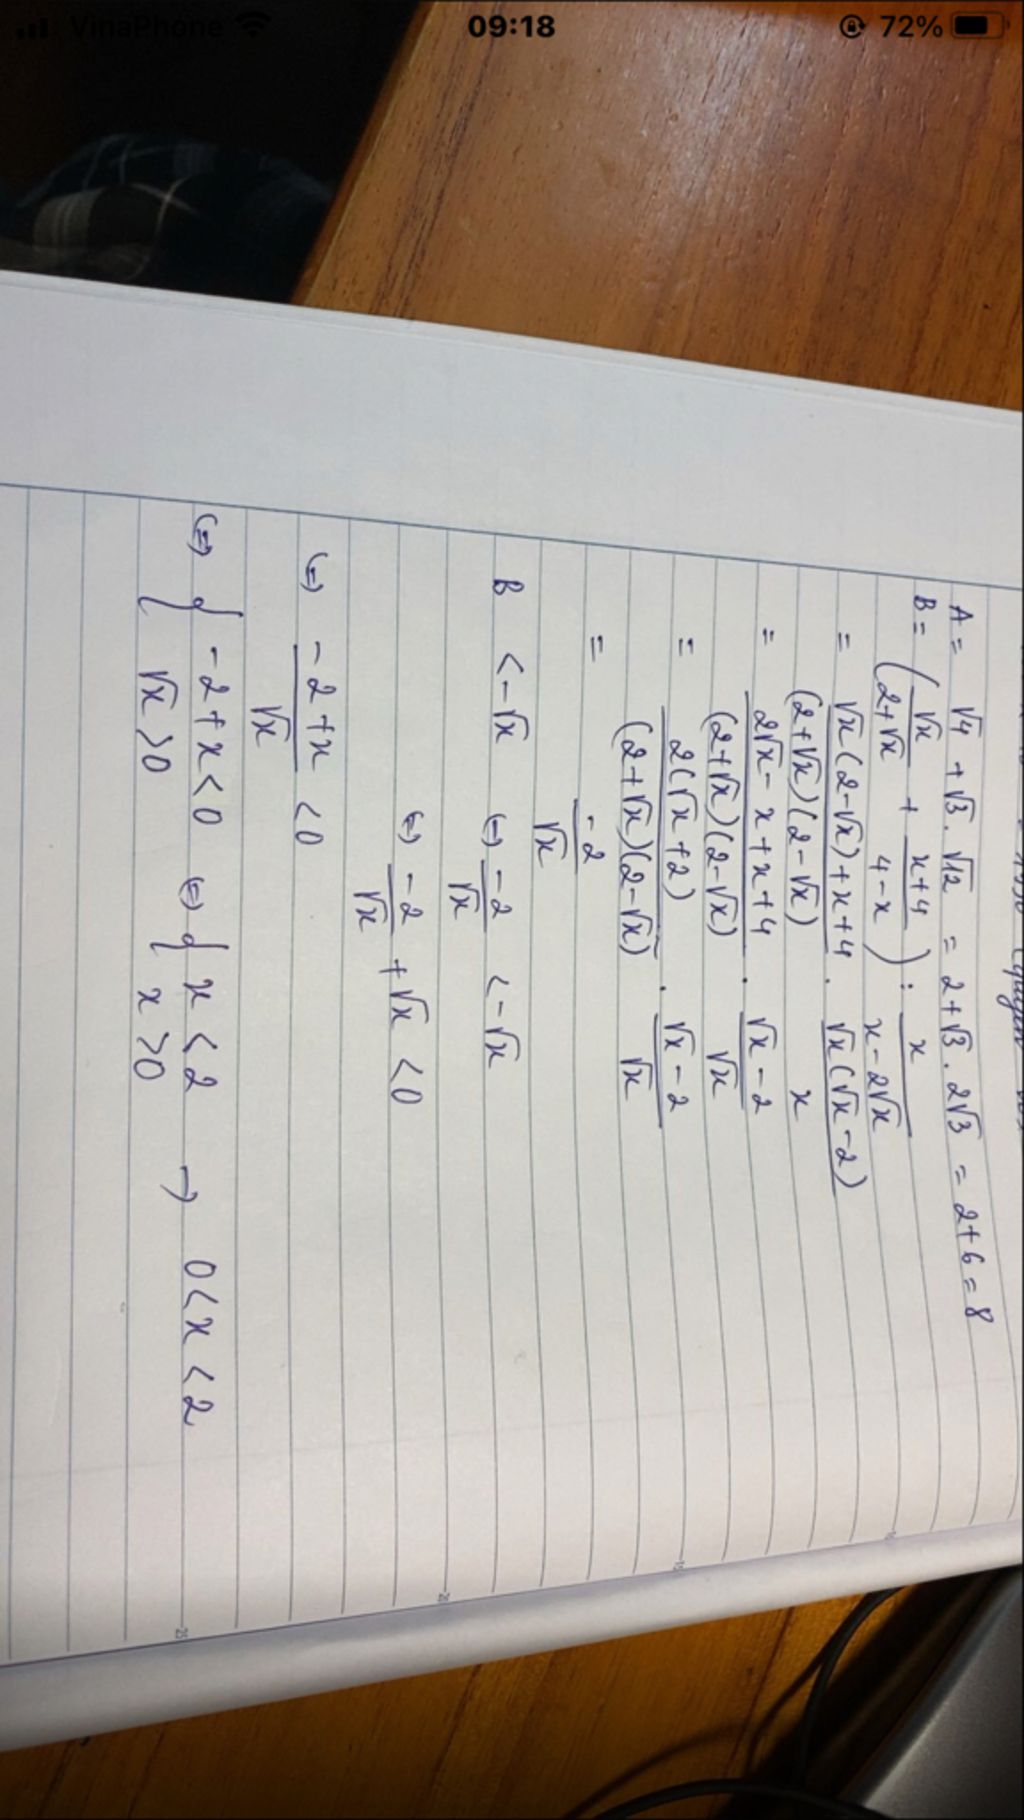 VinaPhone 09:18 72%
A = √4 + √3 . √12 = 2 + √3 . 2√3 = 2 + 6 = 8
B = (√x/(2+√x) + (x+4)/(4-x)) : x/(x-2√x)
= (√x(2-√x)+x+4)/((2+√x)(2-√x)) . (√x(√x-2))/x
= (2√x-x+x+4)/((2+√x)(2-√x)) . (√x-2)/√x
= (2(√x+2))/((2+√x)(2-√x)) . (√x-2)/√x
= -2/√x
B < -√x (=) -2/√x < -√x
(=) -2/√x + √x < 0
(=) (-2+x)/√x < 0
(=) { -2+x < 0 (=) { x < 2 → 0 < x < 2
{ √x > 0 { x > 0
20
25